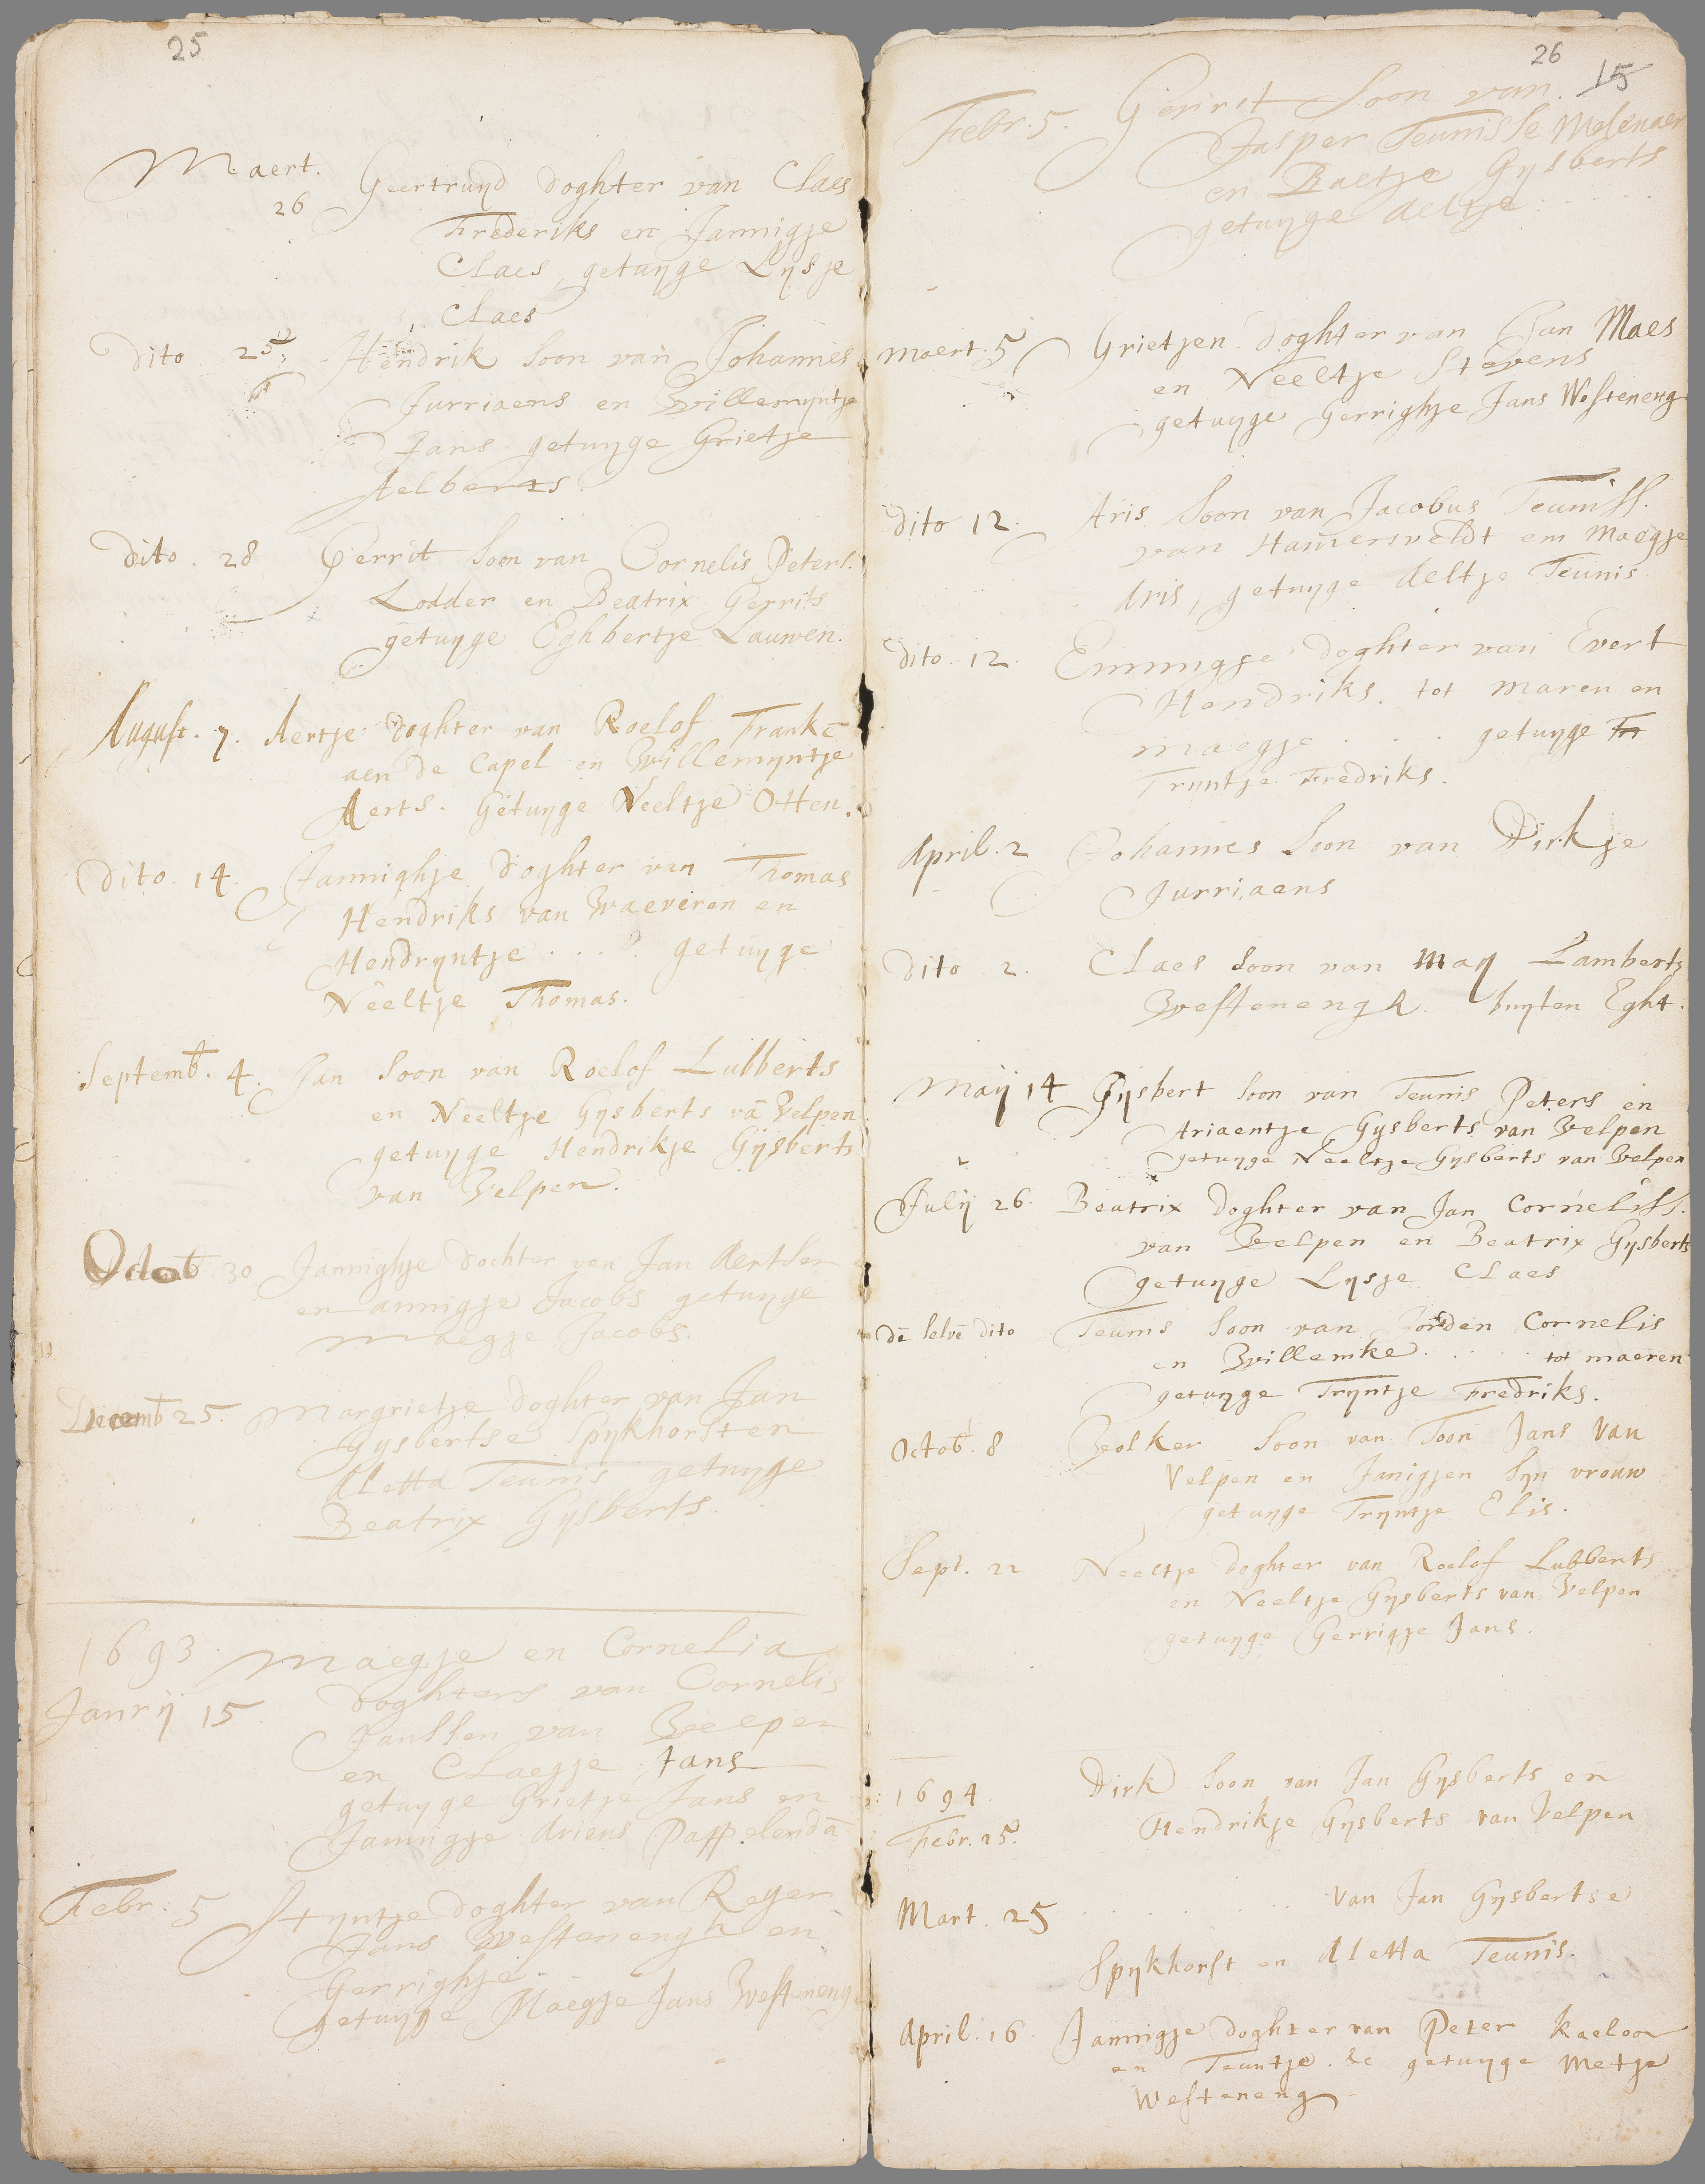 25
Maert. Geertruyd doghter van Claes
26 Frederiks en Jannigje
Claes, getuyge Lysje
Claes
Dito 25 Hendrik soon van Johannes
Jurriaens en Willemyntje
Jans getuyge Grietje
Aelberts.
Dito. 28 Gerrit soon van Cornelis Peters.
Lodder en Beatrix Gerrits
getuyge Eghbertje Lauwen.
August. 7. Aertje doghter van Roelof Frankē
aen de Capel en Willemyntje
Aerts. Getuyge Neeltje Otten.
Dito. 14. Jannighje doghter van Thomas
Hendriks van Waeveren en
Hendryntje . . . . getuyge
Neeltje Thomas.
Septemb. 4. Jan soon van Roelof Lubberts
en Neeltje Gysberts vā Velpen
getuyge Hendrikje Gysberts
van Velpen.
Octob 30 Jannighje dochter van Jan Aertsen
en annigje Jacobs getuyge
Maegje Jacobs.
Decemb 25. Margrietje doghter van Jan
Gysbertse Spykhorst en
Aletta Teunis getuyge
Beatrix Gysberts.
1693 Maegje en Cornelia
Janrij 15 doghters van Cornelis
Janssen van Velpen
en Claegje Jans
getuyge Grietje Jans en
Jannigje Ariens Papp.elendā
Febr: 5 Styntje doghter van Reyer
Jans Westenengh en
Gerrighje.
getuyge Maegje Jans Westeneng
26
15
Febr. 5. Gerrit soon van
Jasper Teunisse Mosenaer
en Baetje Gysberts
getuyge Aeltje . . . . .
Maert. 5 Grietjen doghter van Jan Maes
en Neeltje Stevens
getuyge Gerrighje Jans Westeneng
Dito 12. Aris soon van Jacobus Teuniss.
van Hamersveldt em Maegje
Aris, getuyge Aeltje Teunis.
Dito. 12. Emmigje doghter van Evert
Hendriks. tot Maren en
Maegje . . . getuyge Tr
Tryntje Fredriks.
April. 2 Johannes soon van Dirkje
Jurriaens
Dito 2. Claes soon van May Lamberts
Westenengh. buyten Eght.
Maij 14 Gysbert soon van Teunis Peters en
Ariaentje Gysberts van Velpen
getuyge Neeltje Gysberts van Velpen
Julij 26. Beatrix doghter van Jan Corneliss.
van Velpen en Beatrix Gysberts
getuyge Lysje Claes
dē selvē dito Teunis soon van Corden Cornelis
en Willemke . . . . . tot maeren
getuyge Tryntje Fredriks.
Octob. 8 Volker soon van Toon Jans van
Velpen en Janigjen syn vrouw
getuyge Tryntje Elis.
Sept. 22 Neeltje doghter van Roelof Lubberts
en Neeltje Gysberts van Velpen
getuyge Gerrigje Jans.
1694. Dirk soon van Jan Gysberts en
Febr. 25. Hendrikje Gysberts van Velpen
Mart. 25 . . . . . . . . . van Jan Gysbertse
Spykhorst en Aletta Teunis.
April. 16. Jannigje doghter van Peter Kaeloor
en Teuntje. &c getuyge Metje
Westeneng